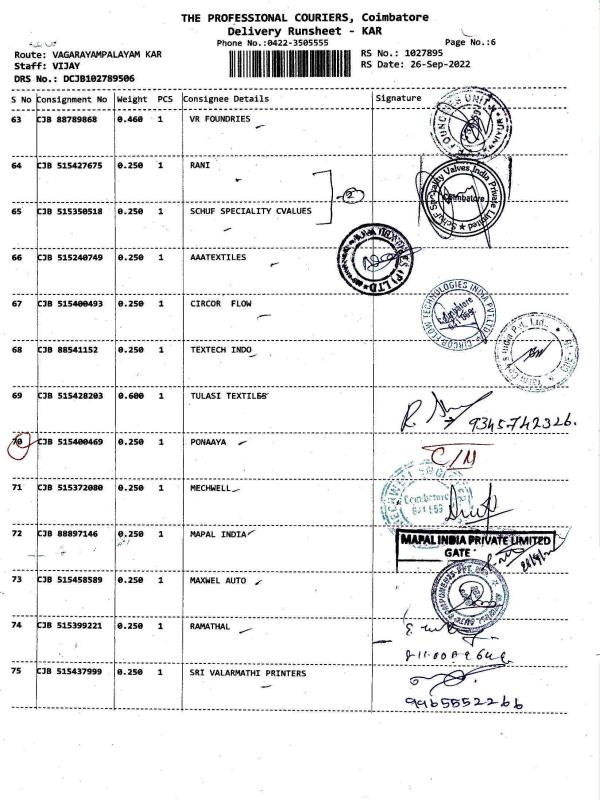 THE PROFESSIONAL COURIERS, Coimbatore
Delivery Runsheet - KAR
Phone No.:0422-3505555 Page No.:6
Route: VAGARAYAMPALAYAM KAR RS No.: 1027895
Staff: VIJAY RS Date: 26-Sep-2022
DRS No.: DCJB102789506
S No Consignment No Weight PCS Consignee Details Signature
63 CJB 88789868 0.460 1 VR FOUNDRIES
64 CJB 515427675 0.250 1 RANI
2
65 CJB 515350518 0.250 1 SCHUF SPECIALITY CVALUES
Coimbatore
66 CJB 515240749 0.250 1 AAATEXTILES
67 CJB 515400493 0.250 1 CIRCOR FLOW
68 CJB 88541152 0.250 1 TEXTECH INDO
69 CJB 515428203 0.600 1 TULASI TEXTILES
9345742326.
70 CJB 515400469 0.250 1 PONAAYA
C/N
71 CJB 515372080 0.250 1 MECHWELL
Coimbatore
72 CJB 88897146 0.250 1 MAPAL INDIA
MAPAL INDIA PRIVATE LIMITED
GATE
73 CJB 515458589 0.250 1 MAXWEL AUTO
74 CJB 515399221 0.250 1 RAMATHAL
75 CJB 515437999 0.250 1 SRI VALARMATHI PRINTERS
9965552266